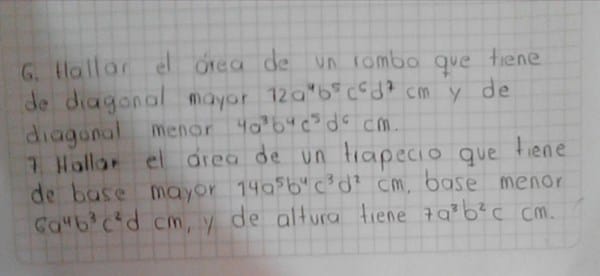 6. Hallar el área de un rombo que tiene
de diagonal mayor 12a⁴b⁵c⁶d⁷ cm y de
diagonal menor 4a³b⁴c⁵d⁶ cm.
7 Hallar el área de un trapecio que tiene
de base mayor 14a⁵b⁴c³d² cm, base menor
6a⁴b³c²d cm, y de altura tiene 7a³b²c cm.